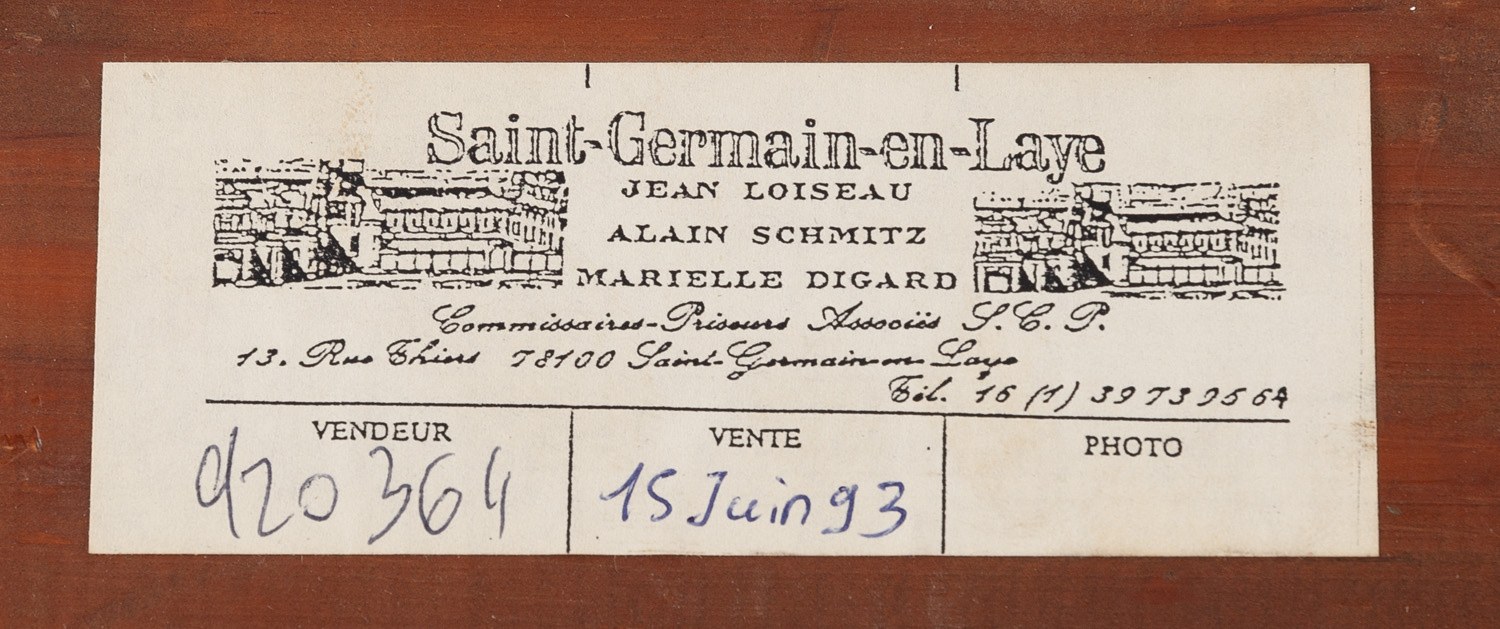 Saint-Germain-en-Laye
JEAN LOISEAU
ALAIN SCHMITZ
MARIELLE DIGARD
Commissaires-Priseurs Associés S.C.P.
13. Rue Thiers 78100 Saint-Germain-en-Laye
Tél. 16 (1) 39 73 95 64
VENDEUR VENTE PHOTO
920364 15 Juin 93